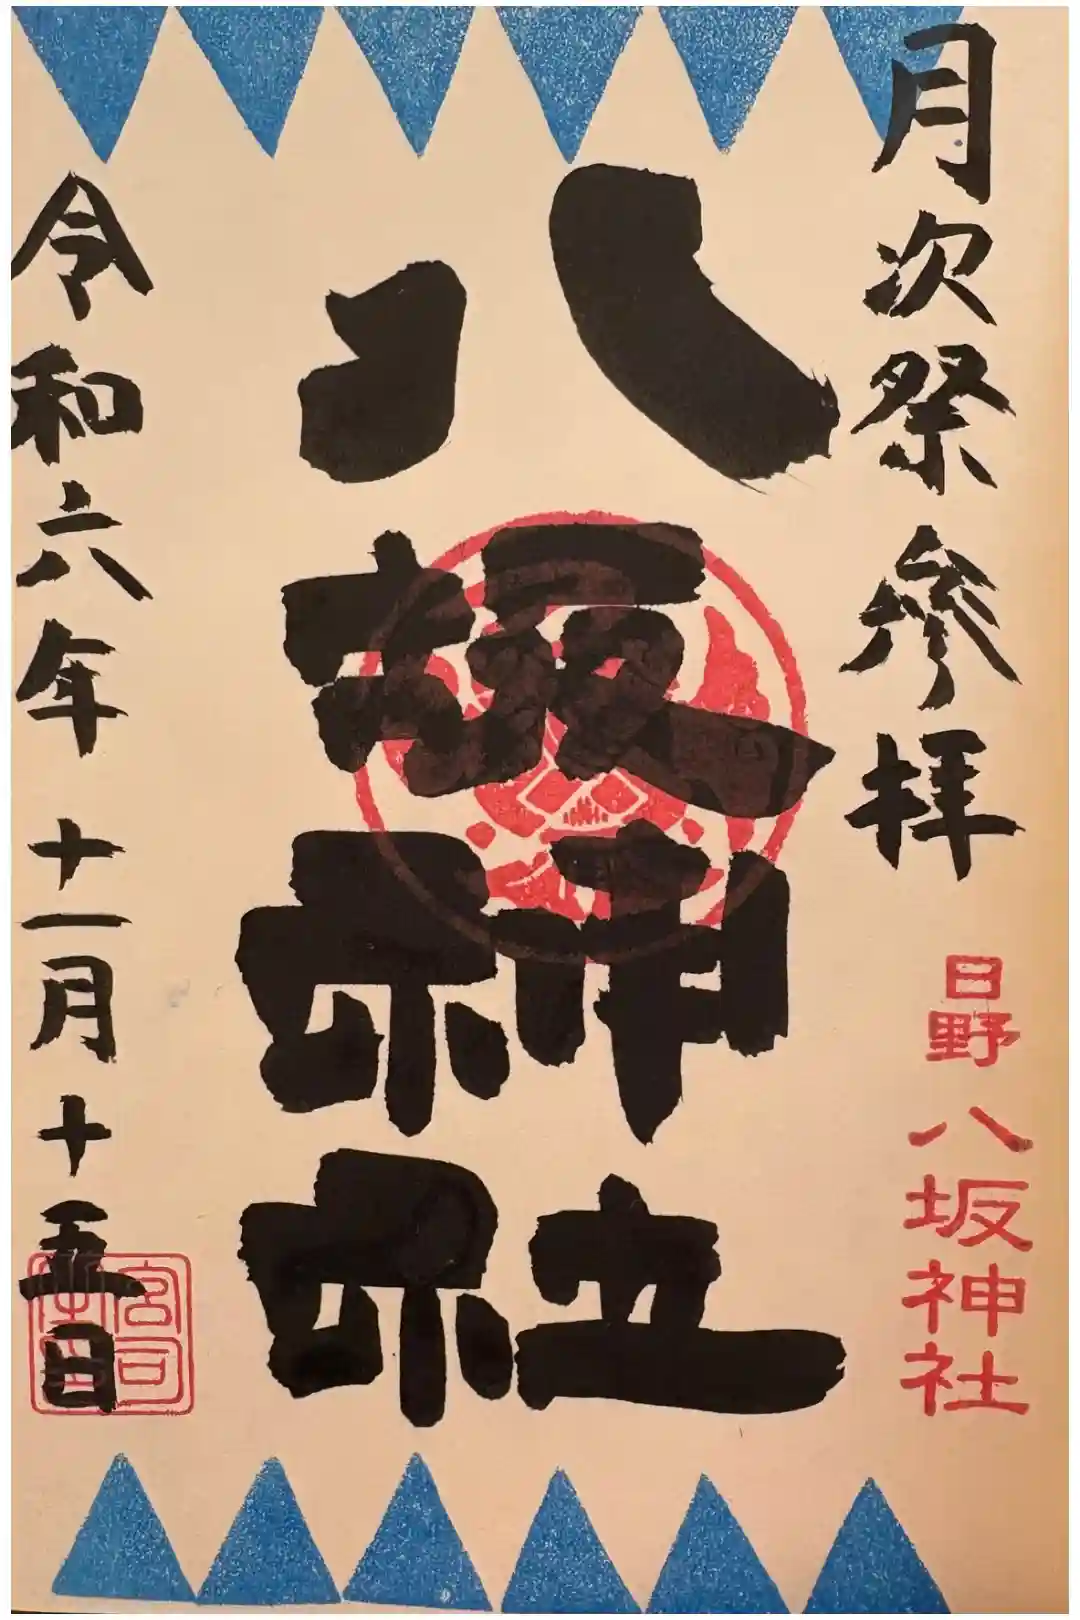 月次祭参拝
日野八坂神社
八坂神社
令和六年十一月十五日
宮司